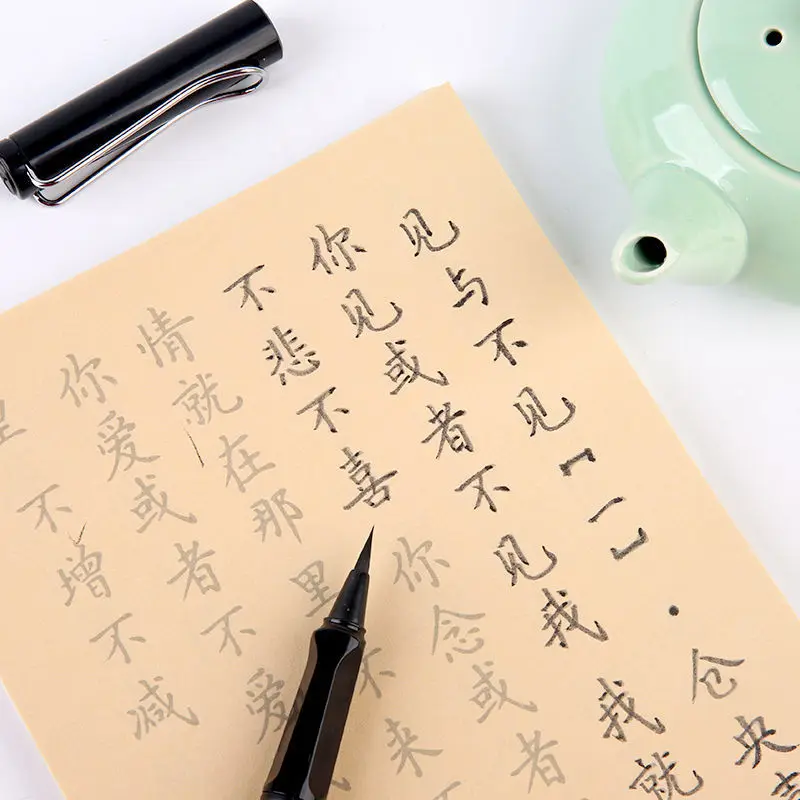 见与不见【一】·仓央
你见或者不见我 我就
不悲不喜 你念或者
情就在那里 不来
你爱或者不爱
里 不增不减